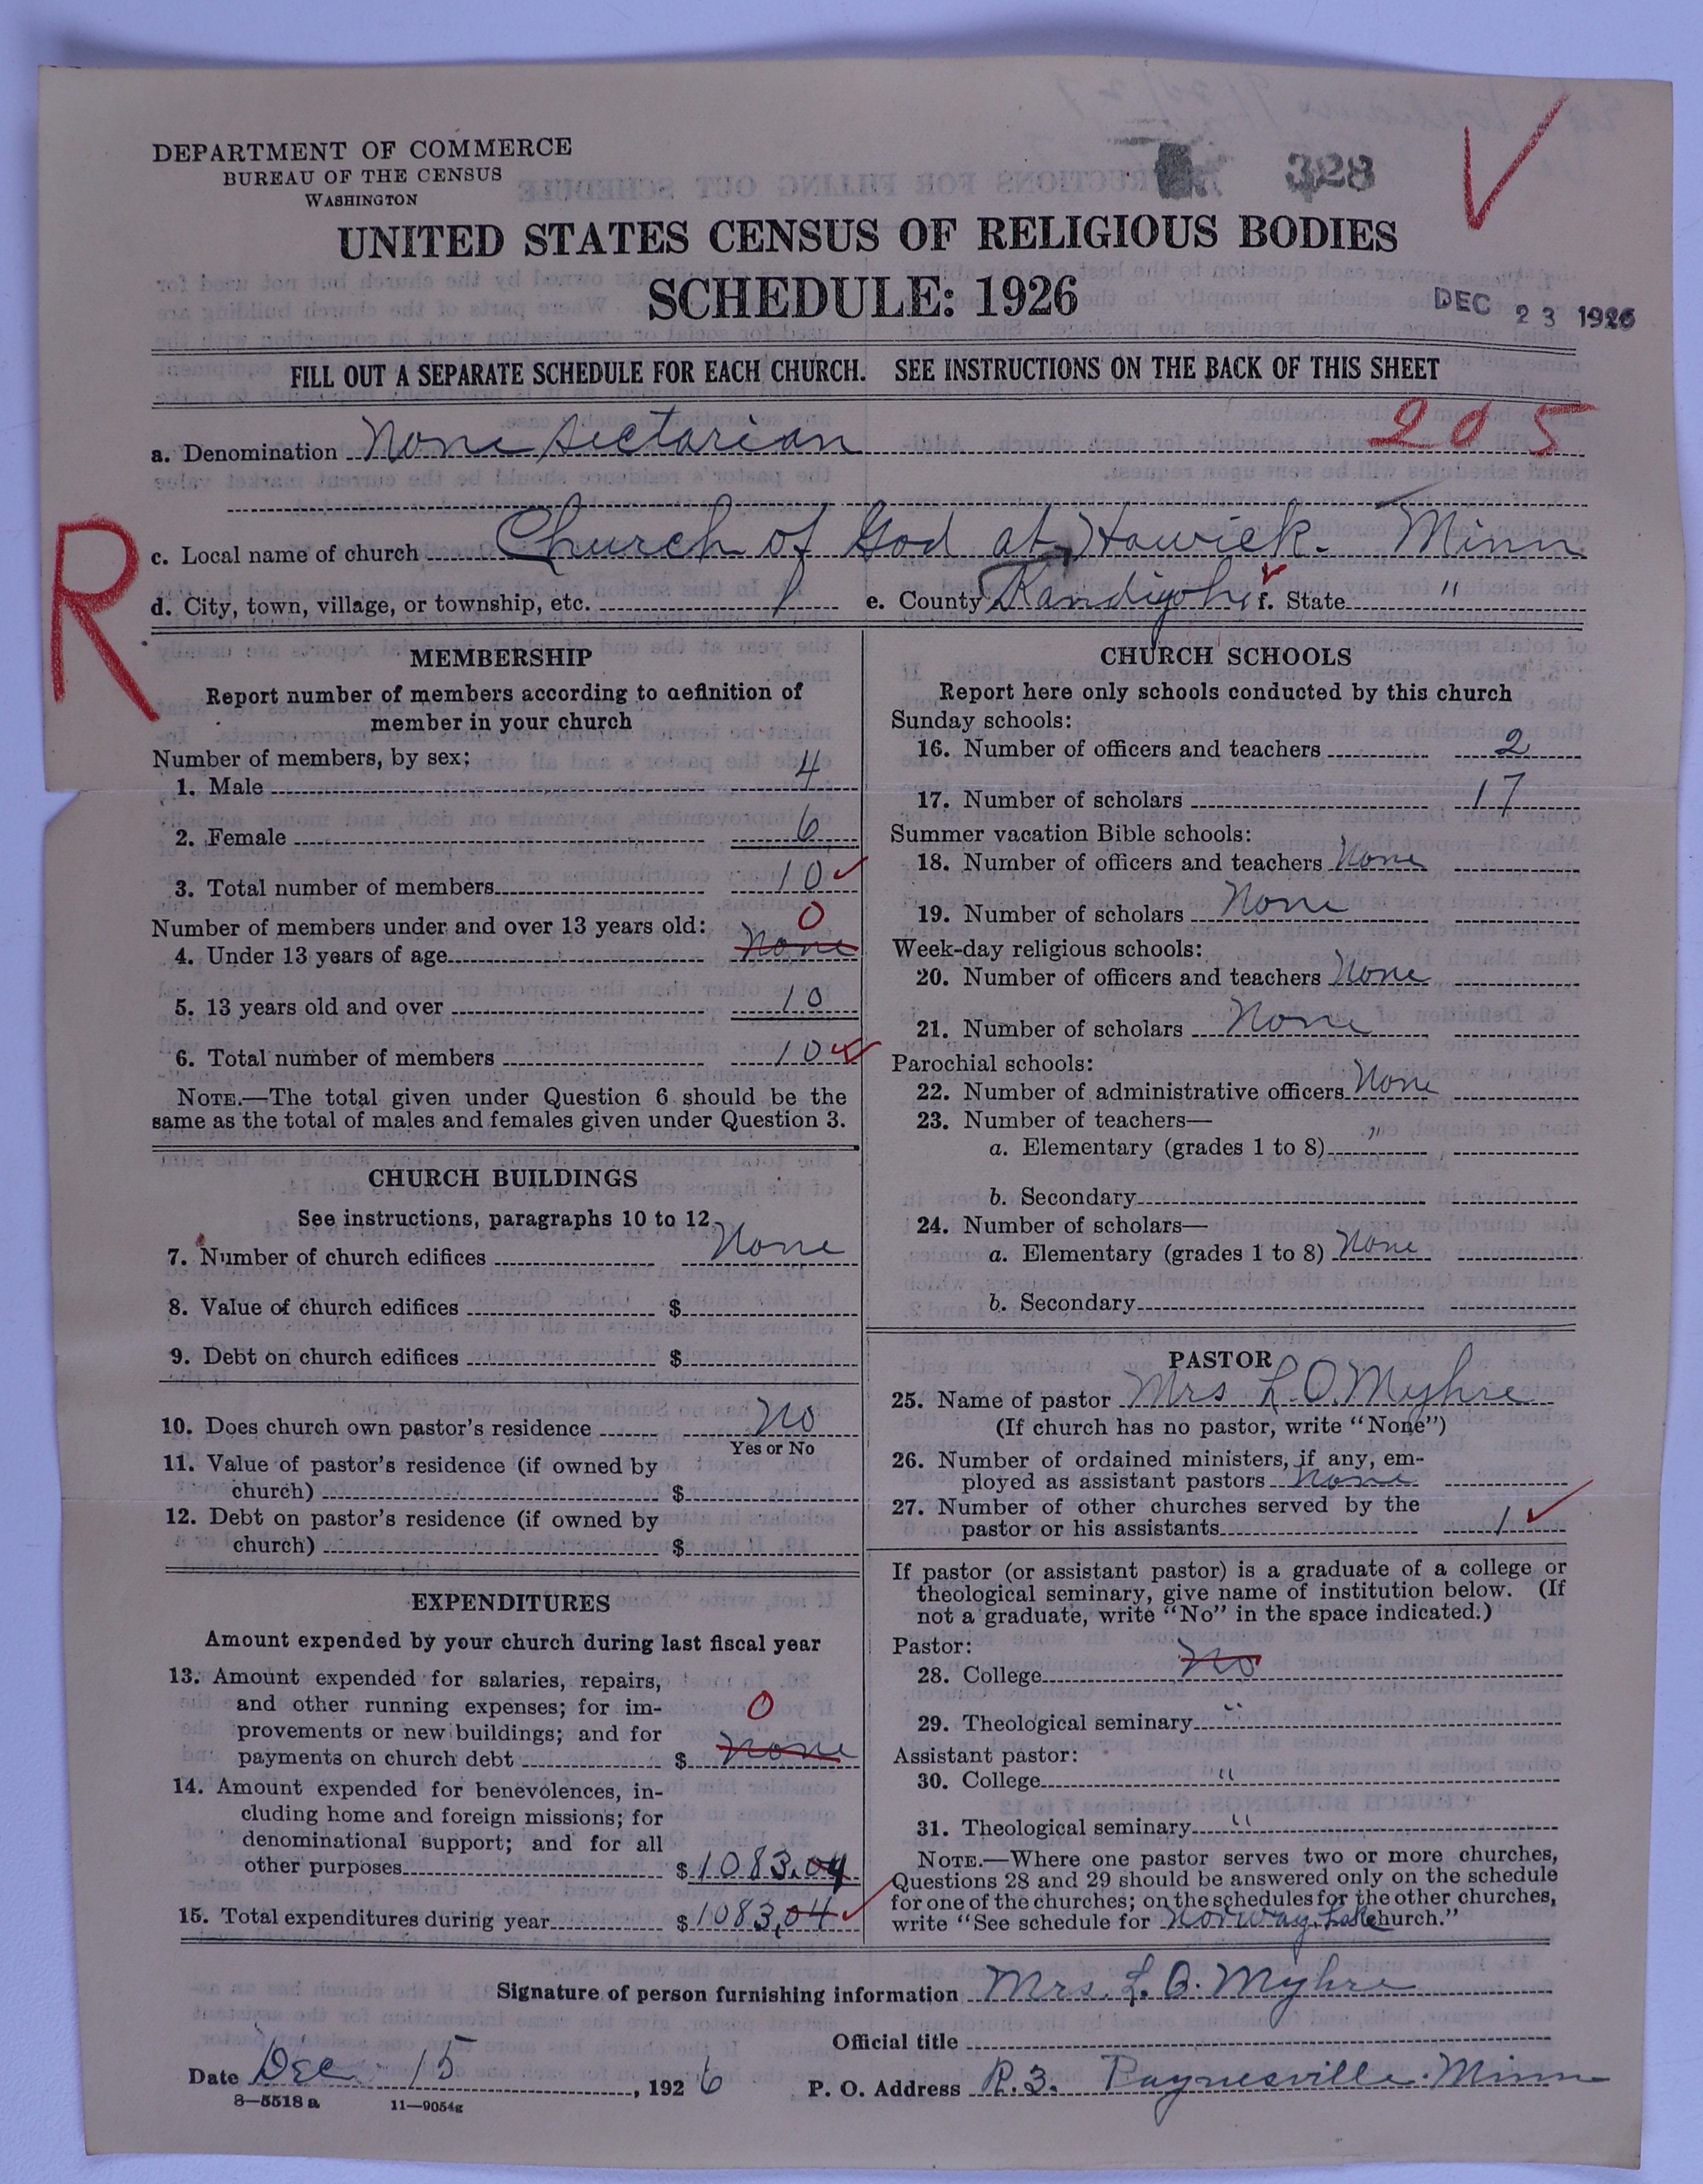 328
DEPARTMENT OF COMMERCE
BUREAU OF THE CENSUS
WASHINGTON
UNITED STATES CENSUS OF RELIGIOUS BODIES
SCHEDULE: 1926
DEC 23 1926
FILL OUT A SEPARATE SCHEDULE FOR EACH CHURCH. SEE INSTRUCTIONS ON THE BACK OF THIS SHEET
205
a. Denomination None sectarian
R
c. Local name of church Church of God at Hawick. Minn
d. City, town, village, or township, etc. e. County Kandiyohi f. State "
MEMBERSHIP
Report number of members according to definition of
member in your church
Number of members, by sex:
1. Male 4
2. Female 6
3. Total number of members 10
0
Number of members under and over 13 years old:
4. Under 13 years of age None
5. 13 years old and over 10
6. Total number of members 10
NOTE.—The total given under Question 6 should be the
same as the total of males and females given under Question 3.
CHURCH BUILDINGS
See instructions, paragraphs 10 to 12.
7. Number of church edifices None
8. Value of church edifices $
9. Debt on church edifices $
10. Does church own pastor's residence No
Yes or No
11. Value of pastor's residence (if owned by
church) $
12. Debt on pastor's residence (if owned by
church) $
EXPENDITURES
Amount expended by your church during last fiscal year
13. Amount expended for salaries, repairs,
and other running expenses; for im-
0
provements or new buildings; and for
payments on church debt $ None
14. Amount expended for benevolences, in-
cluding home and foreign missions; for
denominational support; and for all
other purposes $ 1083.04
15. Total expenditures during year $ 1083,04
CHURCH SCHOOLS
Report here only schools conducted by this church
Sunday schools:
16. Number of officers and teachers 2
17. Number of scholars 17
Summer vacation Bible schools:
18. Number of officers and teachers None
19. Number of scholars None
Week-day religious schools:
20. Number of officers and teachers None
21. Number of scholars None
Parochial schools:
22. Number of administrative officers None
23. Number of teachers—
a. Elementary (grades 1 to 8) "
b. Secondary
24. Number of scholars—
a. Elementary (grades 1 to 8) None
b. Secondary
PASTOR
25. Name of pastor Mrs L.O. Myhre
(If church has no pastor, write "None")
26. Number of ordained ministers, if any, em-
ployed as assistant pastors None
27. Number of other churches served by the
pastor or his assistants 1
If pastor (or assistant pastor) is a graduate of a college or
theological seminary, give name of institution below. (If
not a graduate, write "No" in the space indicated.)
Pastor:
28. College No
29. Theological seminary "
Assistant pastor:
30. College "
31. Theological seminary "
NOTE.—Where one pastor serves two or more churches,
Questions 28 and 29 should be answered only on the schedule
for one of the churches; on the schedules for the other churches,
write "See schedule for Norway Lake church."
Signature of person furnishing information Mrs. L. O. Myhre
Official title
Date Dec 15, 1926 P. O. Address R.3. Paynesville. Minn
8—5518 a 11—9054g